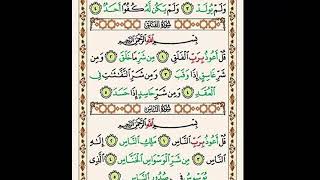 وَلَمْ يُولَدْ ۝٣ وَلَمْ يَكُن لَّهُۥ كُفُوًا أَحَدٌۢ ۝٤
سُورَةُ الْفَلَقِ
بِسْمِ اللَّهِ الرَّحْمَٰنِ الرَّحِيمِ
قُلْ أَعُوذُ بِرَبِّ الْفَلَقِ ۝١ مِن شَرِّ مَا خَلَقَ ۝٢ وَمِن
شَرِّ غَاسِقٍ إِذَا وَقَبَ ۝٣ وَمِن شَرِّ النَّفَّٰثَٰتِ فِى
الْعُقَدِ ۝٤ وَمِن شَرِّ حَاسِدٍ إِذَا حَسَدَ ۝٥
سُورَةُ النَّاسِ
بِسْمِ اللَّهِ الرَّحْمَٰنِ الرَّحِيمِ
قُلْ أَعُوذُ بِرَبِّ النَّاسِ ۝١ مَلِكِ النَّاسِ ۝٢ إِلَٰهِ
النَّاسِ ۝٣ مِن شَرِّ الْوَسْوَاسِ الْخَنَّاسِ ۝٤ الَّذِى
يُوَسْوِسُ فِى صُدُورِ النَّاسِ ۝٥